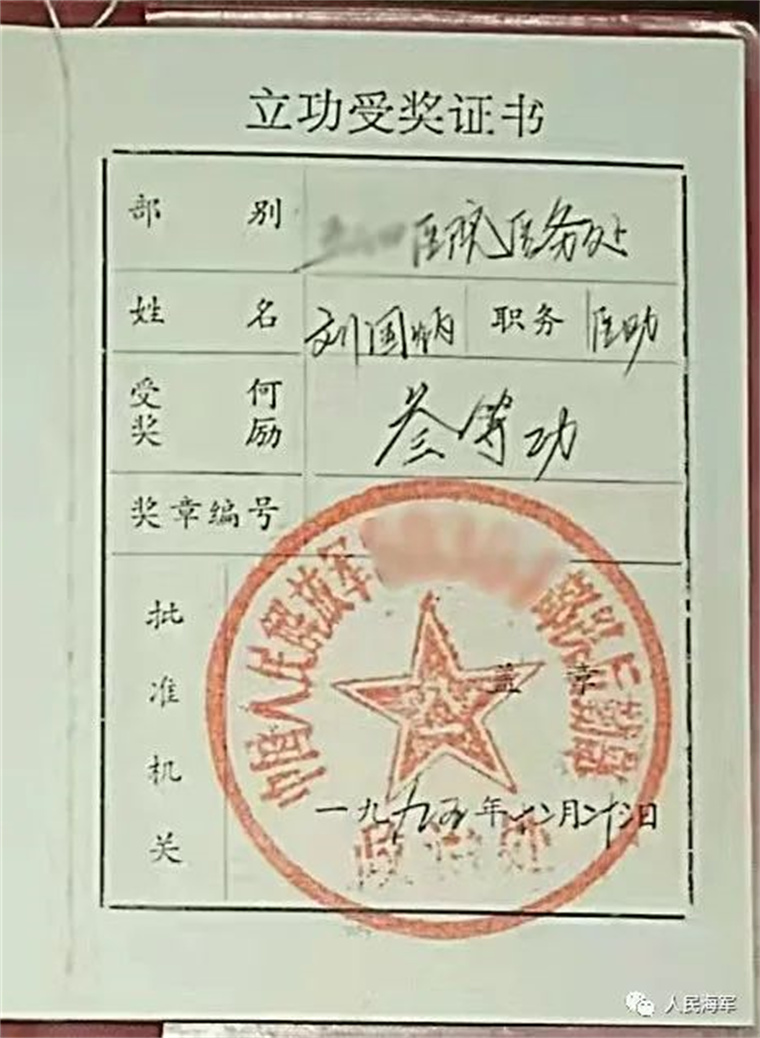 立功受奖证书
部别 医院医务处
姓名 刘国炳 职务 医助
受何奖励 叁等功
奖章编号
批准机关
中国人民解放军
盖章
一九九五年十二月二十日
政治处
人民海军